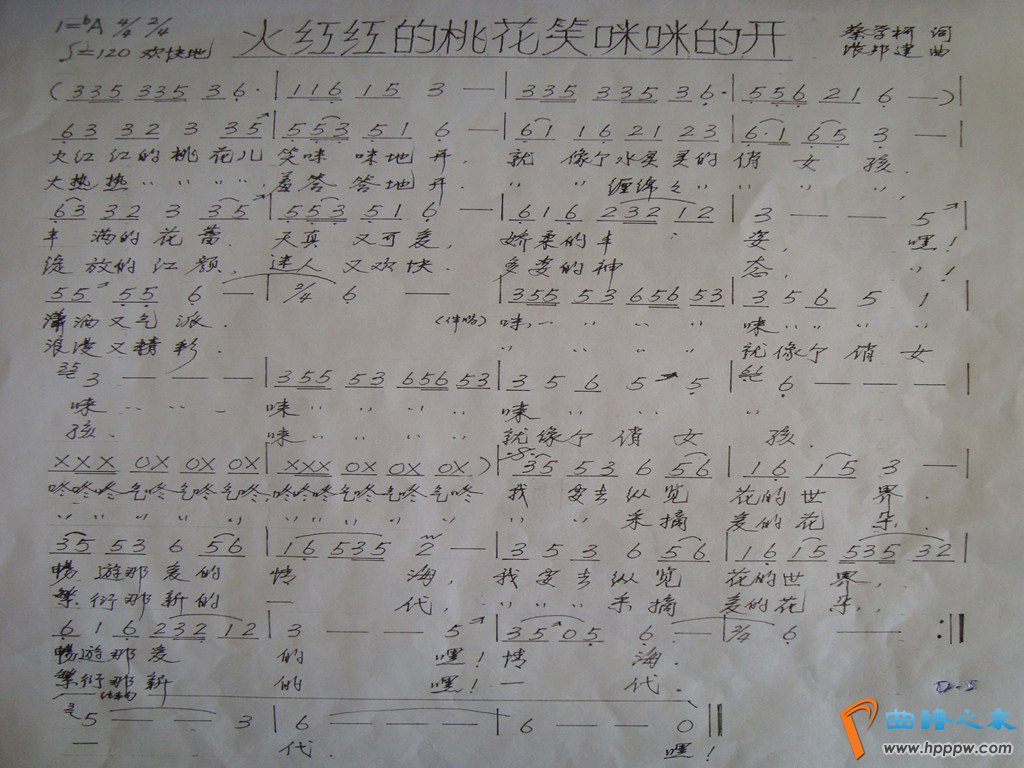 1=♭A 4/4 2/4 火红红的桃花笑咪咪的开 蔡学柯 词
♩=120 欢快地 邦建 曲
(335 335 36· | 116 15 3 — | 335 335 36· | 556 21 6 —)|
63 32 3 35 | 553 51 6 — | 61 16 21 23 | 6·1 65 3 — |
火红红的桃花儿笑咪咪地开, 就像个水灵灵的俏女孩,
火热热 〃 〃 〃 〃 羞答答地开. 〃 〃 缠绵々 〃 〃 〃 〃
63 32 3 35 | 553 51 6 — | 616 232 12 | 3 — — 5 |
丰满的花蕾. 天真又可爱, 娇柔的丰姿, 嘿!
绽放的红颜, 迷人又欢快. 多姿的神态, 〃!
55 55 6 — | 2/4 6 — | 355 53 656 53 | 3 5 6 5 1 |
潇洒又气派. (伴唱) 咪一 〃 〃 〃 咪 〃 〃 〃 〃
浪漫又精彩. 〃 〃 〃 〃 就像个俏女
3 — — — | 355 53 656 53 | 3 5 6 5 5 | 6 — — — |
咪 〃 〃 〃 咪 〃 〃 〃 〃 咪 〃 〃 〃 〃
孩. 咪 〃 〃 〃 〃 就像个俏女孩.
XXX 0X 0X 0X | XXX 0X 0X 0X) | 35 53 6 56 | 16 15 3 — |
咚咚咚乞咚乞咚乞咚, 咚咚咚乞咚乞咚乞咚 我要去纵览花的世界.
〃 〃 〃 〃 〃 〃 〃 〃 〃 〃 〃 〃 采摘爱的花朵.
35 53 6 56 | 16 535 2 — | 3 5 3 6 56 | 16 15 535 32 |
畅游那爱的情海, 我要去纵览花的世界,
繁衍那新的一代, 〃 〃 〃 采摘爱的花朵.
616 232 12 | 3 — — 5 | 35 05 6 — | 2/4 6 — :‖
畅游那爱的嘿! 情海.
繁衍那新的嘿! 一代.
结束句
5 — — 3 | 6 — — — | 6 — — 0 ‖
一代. 嘿!
曲谱之家
www.hpppw.com